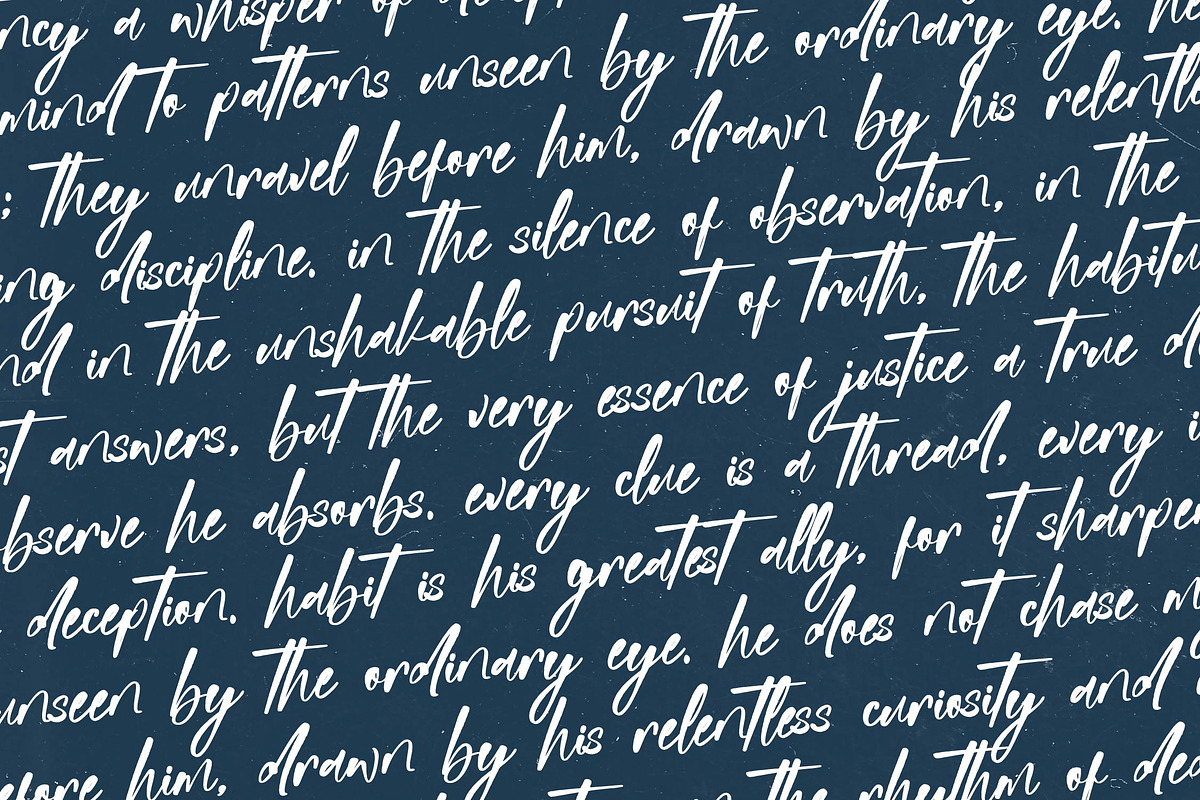 ncy a whisper of
mind to patterns unseen by the ordinary eye.
; they unravel before him, drawn by his relentle
ing discipline. in the silence of observation, in the
nd in the unshakable pursuit of truth, the habitu
st answers, but the very essence of justice a true
bserve he absorbs. every clue is a thread, every i
deception. habit is his greatest ally, for it sharpe
unseen by the ordinary eye. he does not chase m
efore him, drawn by his relentless curiosity and
the rhythm of dec